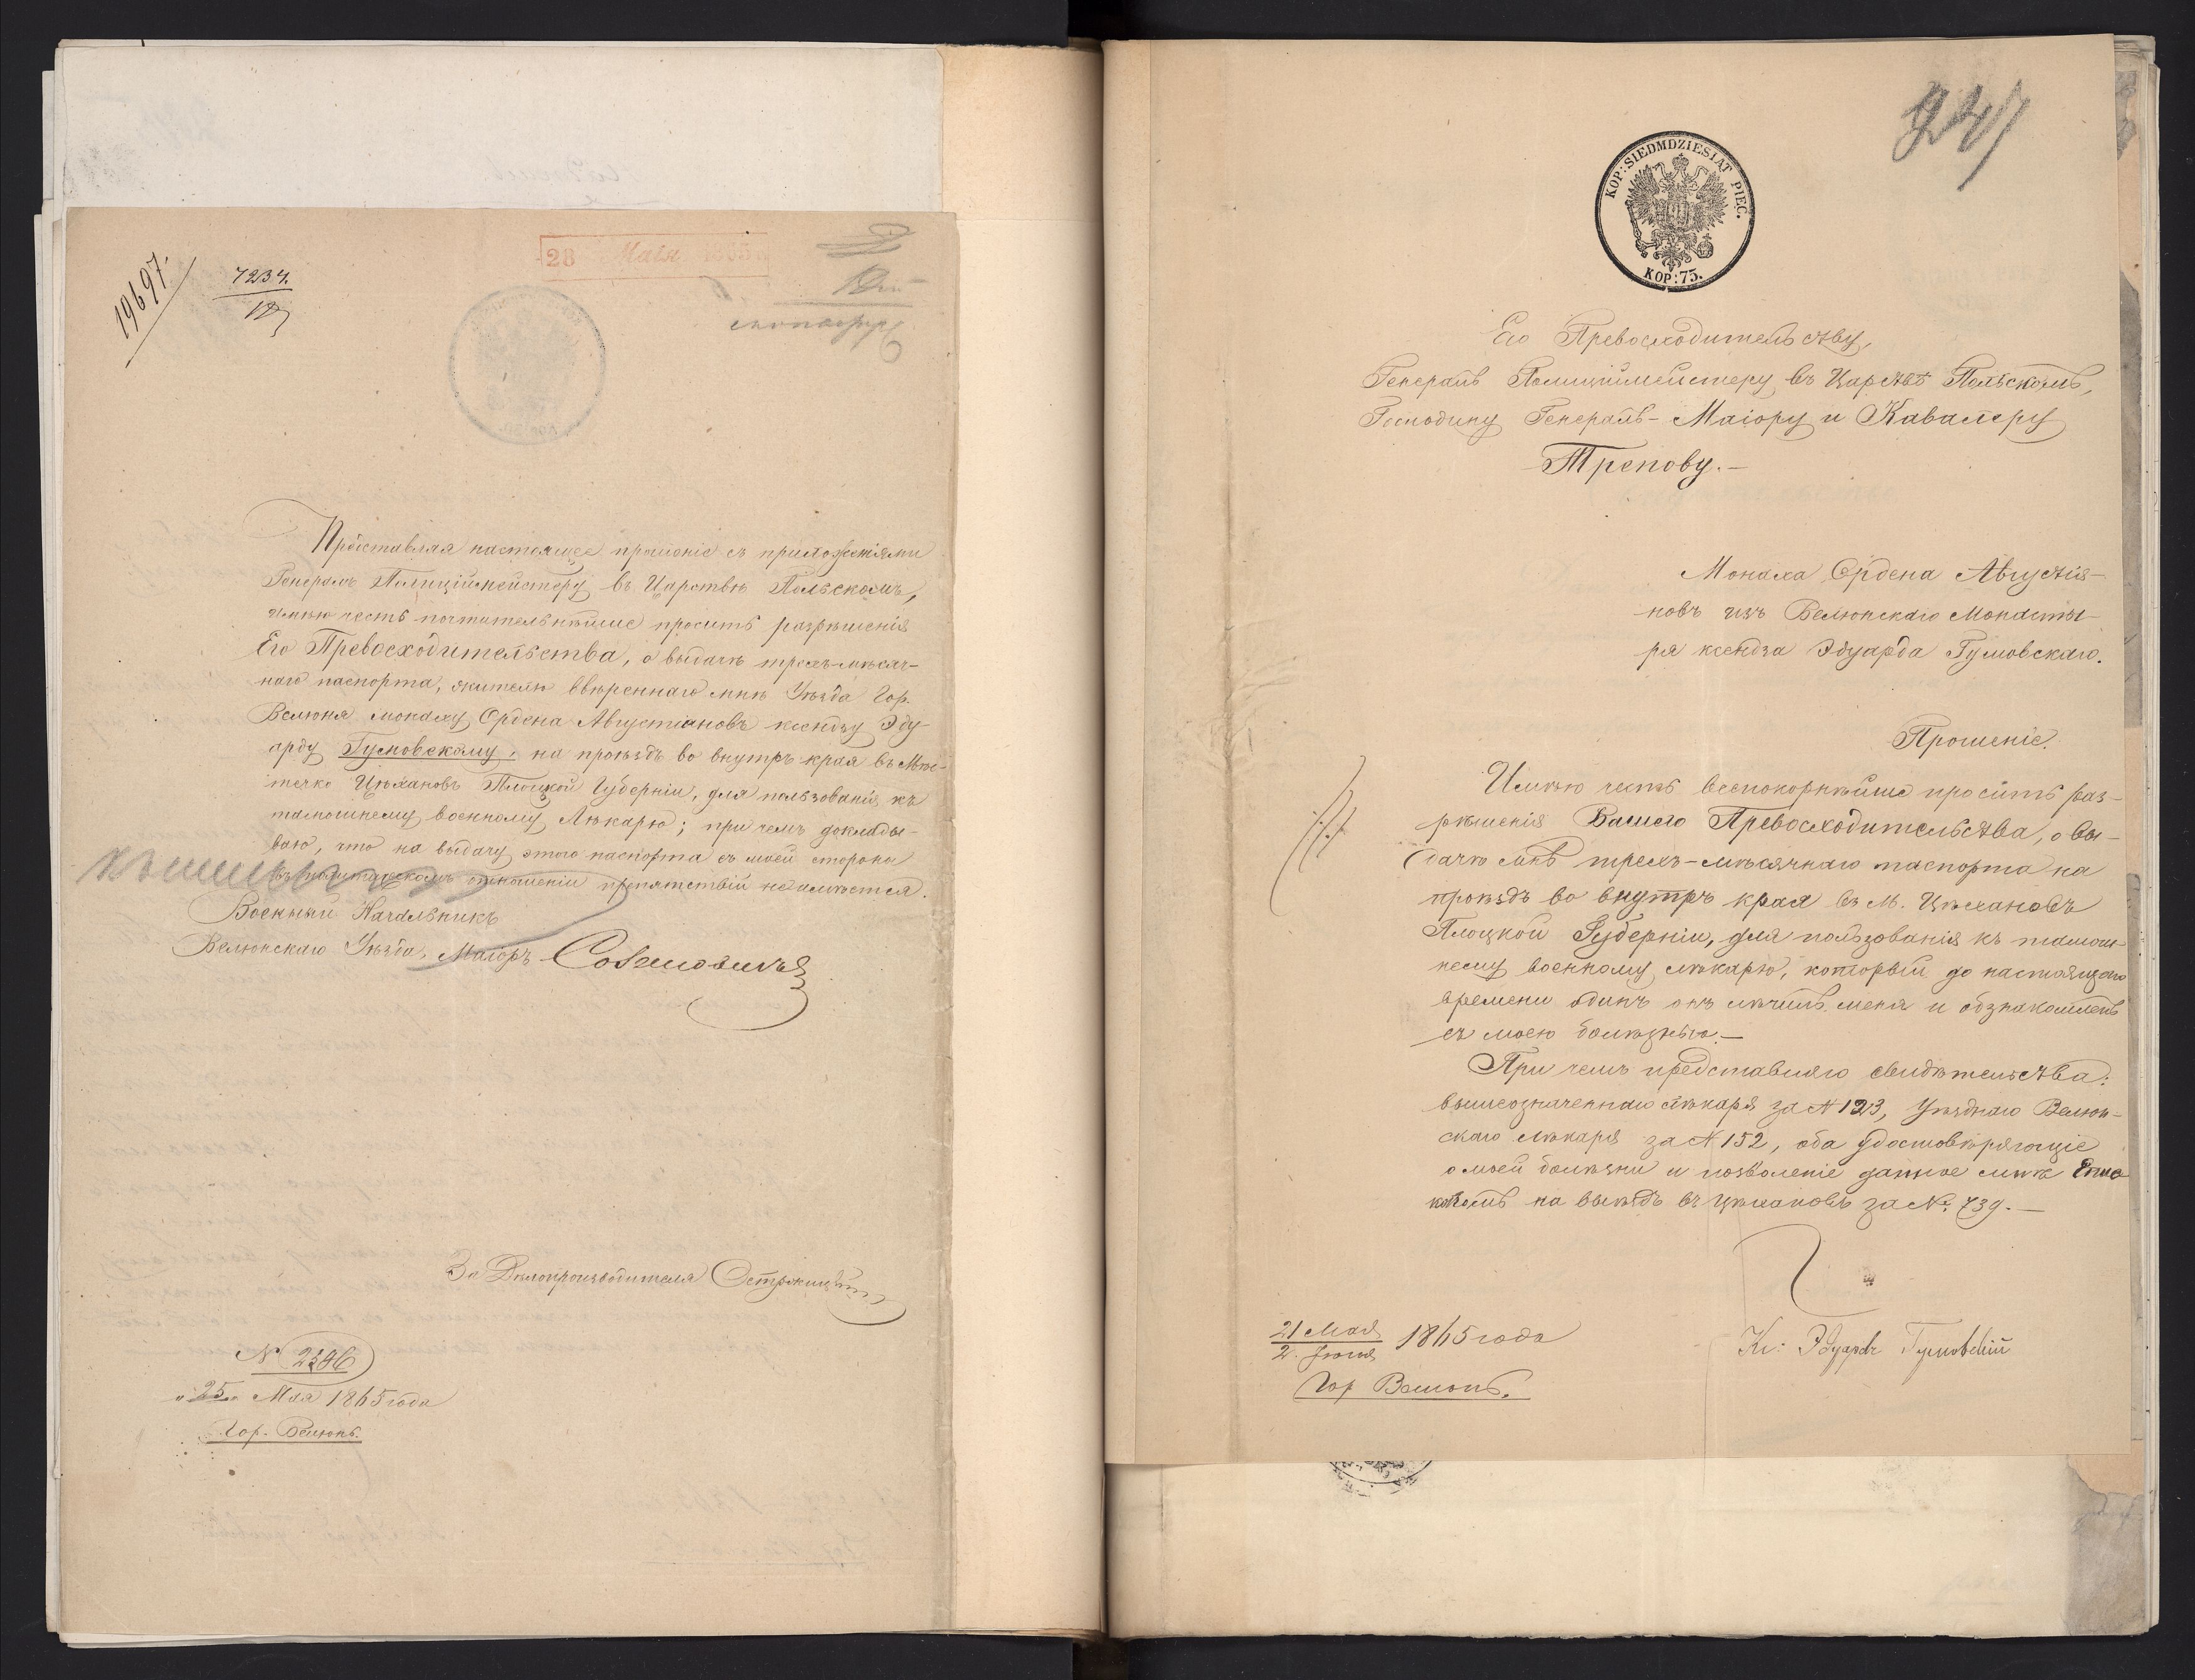 19697.
7234.
28 Мая 1865
Представляя настоящее прошеніе съ приложеніями
Генералъ Полиціймейстеру въ Царствѣ Польскомъ,
имѣю честь почтительнѣйше просить разрѣшенія
Его Превосходительства, о выдачѣ трехъ-мѣсяч-
наго паспорта, жителю ввѣреннаго мнѣ Уѣзда Гор.
Велюня монаху Ордена Августіановъ ксендзу Эду-
арду Гумовскому, на проѣздъ во внутрь края въ Мѣс-
течко Цѣхановъ Плоцкой Губерніи, для пользованія къ
тамошнему военному Лѣкарю; при чемъ доклады-
ваю, что на выдачу этого паспорта съ моей стороны
въ отношеніи препятствій не имѣется.
Военный Начальникъ
Велюнскаго Уѣзда, Маіоръ
За Дѣлопроизводителя
N 2346
"25" Мая 1865 года
Гор. Велюнь.
247
KOP: SIEDMDZIESIAT PIĘC.
KOP: 75.
Его Превосходительству,
Генералъ Полиціймейстеру въ Царствѣ Польскомъ,
Господину Генералъ-Маіору и Кавалеру
Трепову.—
Монаха Ордена Августія-
новъ изъ Велюнскаго Монасты-
ря ксендза Эдуарда Гумовскаго.
Прошеніе.
Имѣю честь всепокорнѣйше просить раз-
рѣшенія Вашего Превосходительства, о вы-
дачѣ мнѣ трехъ-мѣсячнаго паспорта на
проѣздъ во внутрь края въ М. Цѣхановъ
Плоцкой Губерніи, для пользованія къ тамош-
нему военному лѣкарю, который до настоящаго
времени одинъ онъ лѣчилъ меня и обзнакомленъ
съ моею болѣзнью.—
При чемъ представляю свидѣтельства:
вышеозначеннаго лѣкаря за N 123, Уѣзднаго Велюн-
скаго лѣкаря за N 152, оба удостовѣряющіе
о моей болѣзни и позволеніе данное мнѣ Епис
копомъ на выѣздъ въ Цѣхановъ за №. 739.—
21 Мая
2. Іюня 1865 года
Гор Велюнь.
Кс: Эдуардъ Гумовскій